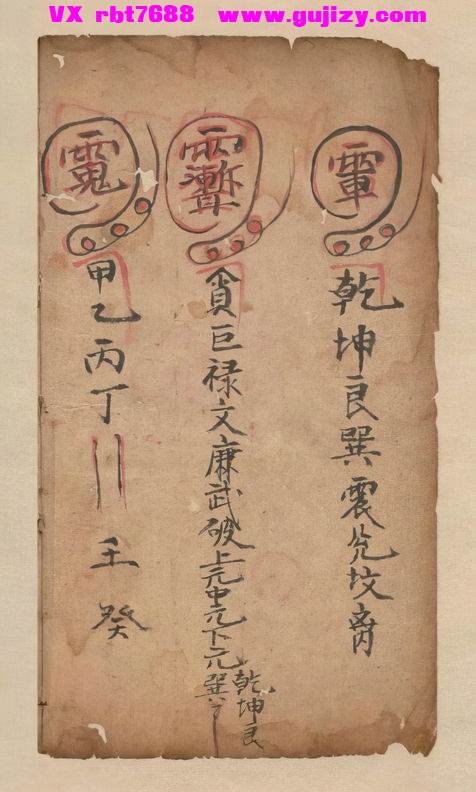 VX rbt7688 www.gujizy.com
乾坤良巽震兊坟离
貪巨禄文廉武破上元中元下元
乾坤良
巽
甲乙丙丁
壬癸